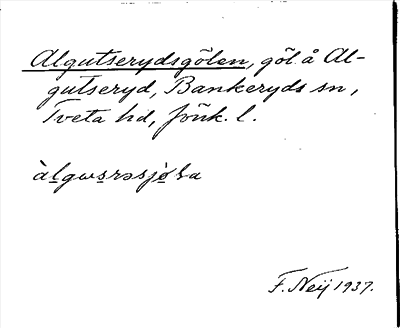 Algutserydsgölen, göl å Al-
gutseryd, Bankeryds sn,
Tveta hd, Jönk. l.
F. Neij 1937.